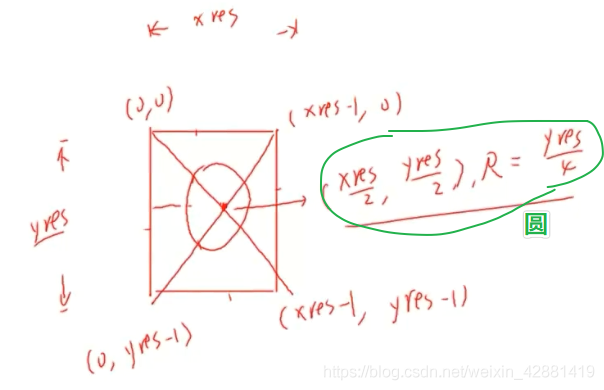 xres
(0,0)
(xres-1, 0)
(xres/2, yres/2), R = yres/4
圆
yres
(xres-1, yres-1)
(0, yres-1)
https://blog.csdn.net/weixin_42881419